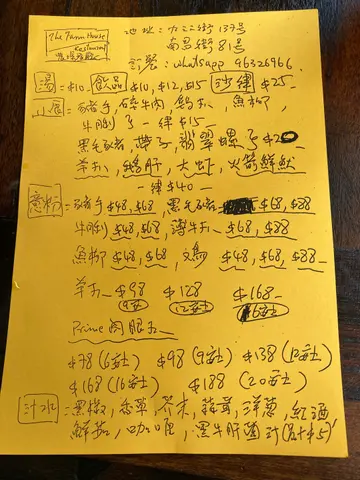 The Farm House
Restaurant
地址：九江街137号
南昌街81号
訂餐：whatsapp 96326966
湯=$10、飲品=$10,$12,$15 沙律 $25-
小食=豬手,碎牛肉,鸡扒、魚柳,
牛脷了一律 $15-
黑毛豬, 帶子, 翡翠螺了$20
羊扒, 鵝肝, 大虾, 火箭鮮魷
一律 $40-
意粉=豬手 $48,$68, 黑毛豬 $68,$88
牛脷 $48,$68, 薄牛扒 $68,$88
魚柳 $48,$68, 鸡 $48,$68,$88-
羊扒 $98 $128 $168-
(9安士) (12安士) (16安士)
Prime肉眼扒
$78(6安士) $98(9安士) $138(12安士)
$168(16安士) $188(20安士)
汁水=黑椒,香草,芥末,蒜茸,洋葱,紅酒
鮮茄,咖喱,黑牛肝菌汁(各+$5)